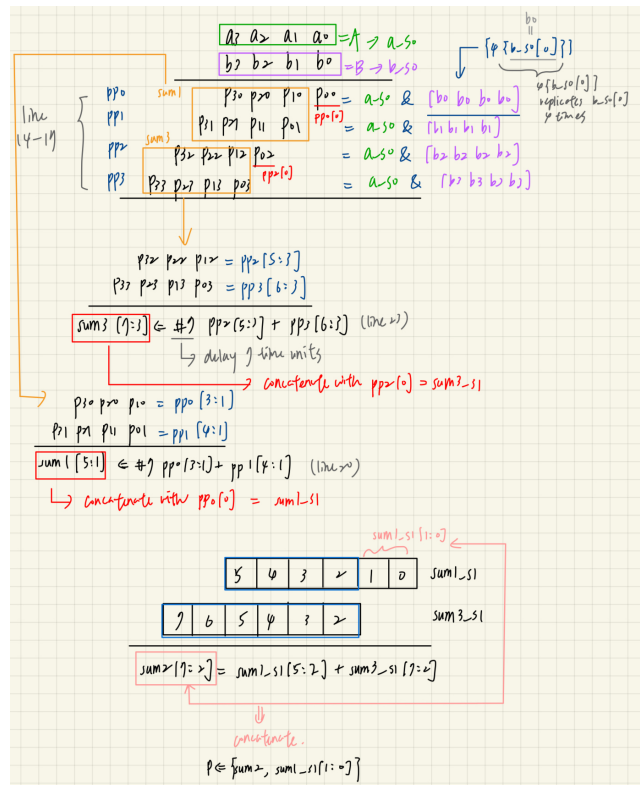 b0
a3 a2 a1 a0 = A → a_s0
{4{b_s0[0]}}
b3 b2 b1 b0 = B → b_s0
4{b_s0[0]} replicates b_s0[0] 4 times
line 14-17
pp0 sum1 p30 p20 p10 p00 = a_s0 & [b0 b0 b0 b0]
pp0[0]
pp1 p31 p21 p11 p01 = a_s0 & [b1 b1 b1 b1]
sum3
pp2 p32 p22 p12 p02 = a_s0 & [b2 b2 b2 b2]
pp2[0]
pp3 p33 p23 p13 p03 = a_s0 & [b3 b3 b3 b3]
p32 p22 p12 = pp2[5:3]
p33 p23 p13 p03 = pp3[6:3]
sum3 [7:3] ⇐ #7 pp2[5:3] + pp3[6:3] (line 23)
↳ delay 7 time units
→ concatenate with pp2[0] = sum3_s1
p30 p20 p10 = pp0[3:1]
p31 p21 p11 p01 = pp1[4:1]
sum1 [5:1] ⇐ #7 pp0[3:1] + pp1[4:1] (line 20)
↳ concatenate with pp0[0] = sum1_s1
sum1_s1[1:0]
5 4 3 2 1 0 sum1_s1
7 6 5 4 3 2 sum3_s1
sum2[7:2] = sum1_s1[5:2] + sum3_s1[7:2]
concatenate.
P ⇐ {sum2, sum1_s1[1:0]}